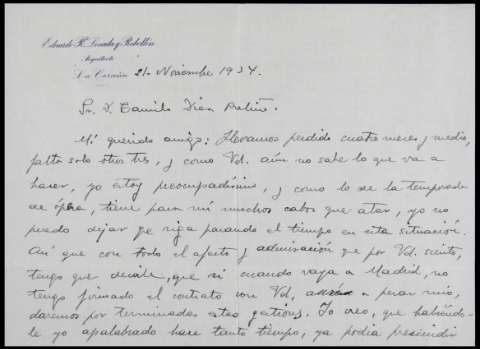 Eduardo R. Losada y Rebellón
Arquitecto
La Coruña 21- Noviembre 1934.
Sr. D. Camilo Díaz Baliño.
Mi querido amigo: Llevamos perdido cuatro meses y medio,
falta solo otros tres, y como Vd. aún no sabe lo que va a
hacer, yo estoy preocupadísimo, y como lo de la temporada
de ópera, tiene para mí muchos cabos que atar, yo no
puedo dejar qe siga pasando el tiempo en esta situación.
Así que con todo el afecto y admiración que por Vd. siento,
tengo que decirle, que si cuando vaya a Madrid, no
tengo firmado el contrato con Vd, a pesar mío,
daremos por terminadas estas gestiones. Yo creo, que habiéndo-
le yo apalabrado hace tanto tiempo, ya podía prescindir